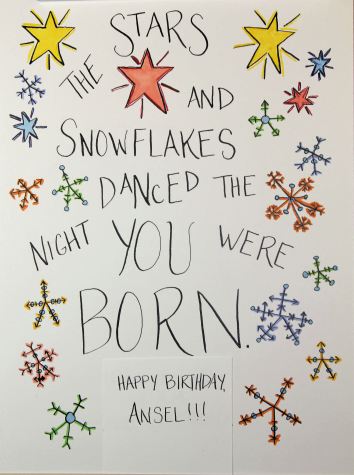 STARS
THE
AND
SNOWFLAKES
DANCED THE
NIGHT YOU WERE
BORN.
HAPPY BIRTHDAY,
ANSEL!!!